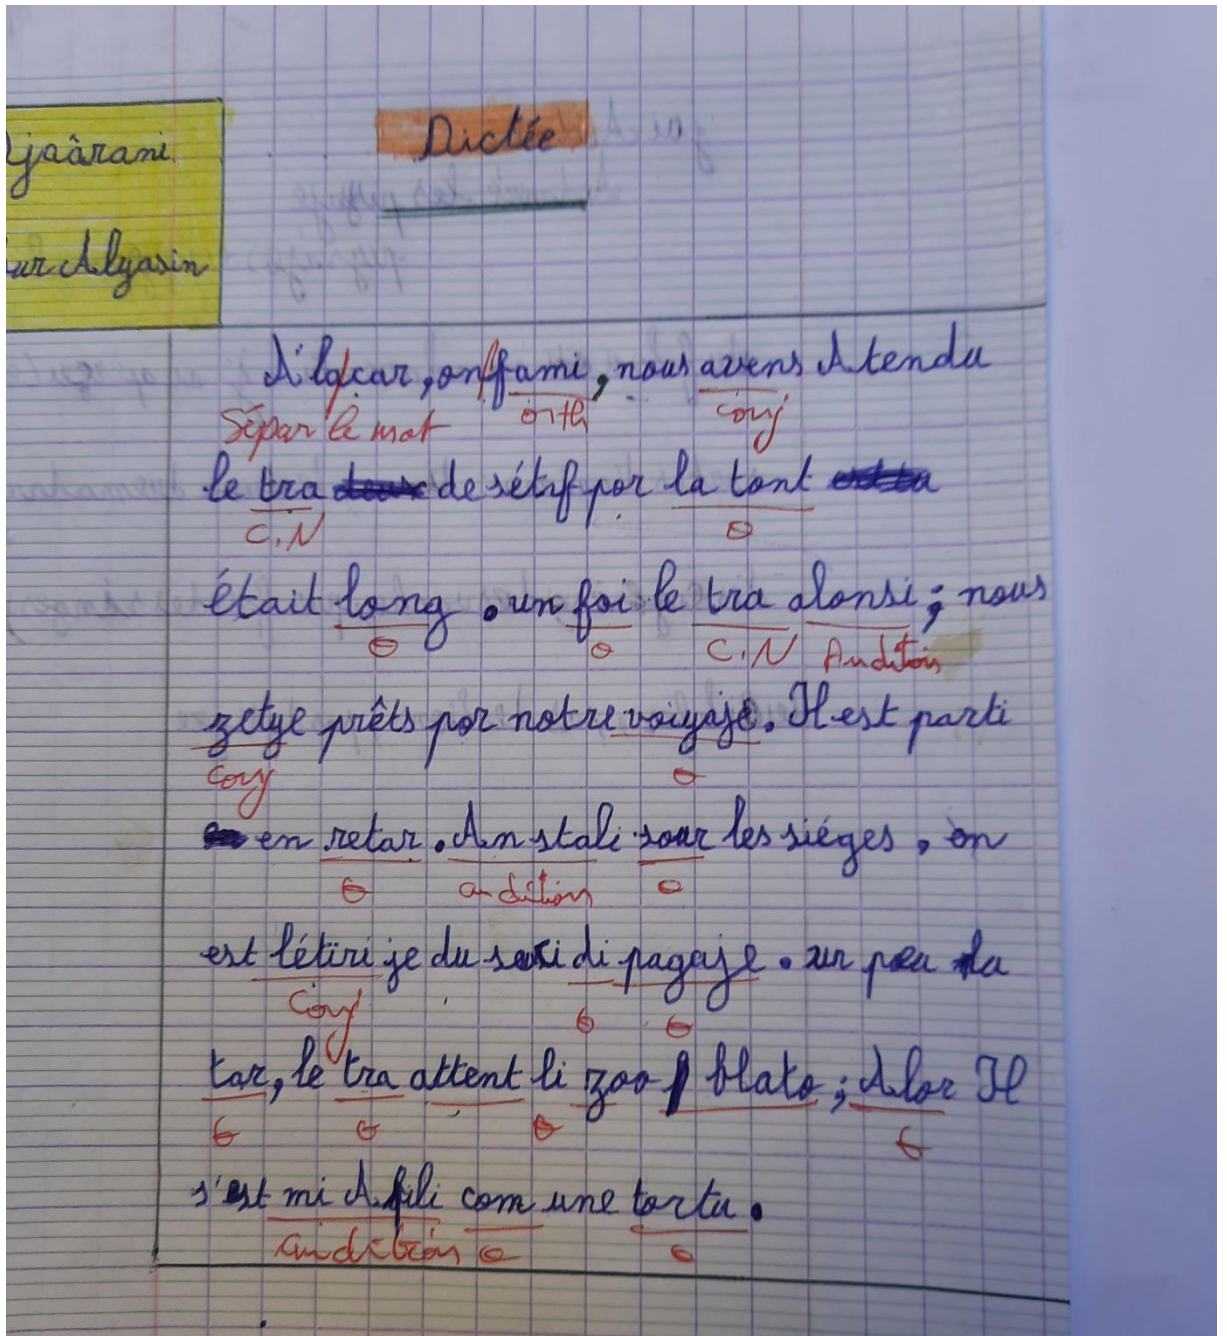 Djaârani
Dictée
ur Alyasin
A'lqcar, on fami, nous avens Atendu
Sépar le mot orth conj
le tra de sétif por la tant
C.N O
était long . un foi le tra alonsi ; nous
O O C.N Audition
zetye prêts por notre voiyaje. Il est parti
Conj O
en retar . An stali sour les siéges , on
O audition O
est létiri je du sasi di pagaje . un peu ta
Conj O O
tar, le tra attent li zoo blato ; Alor Il
O O O O
s'est mi A fili com une tortu .
audition O O